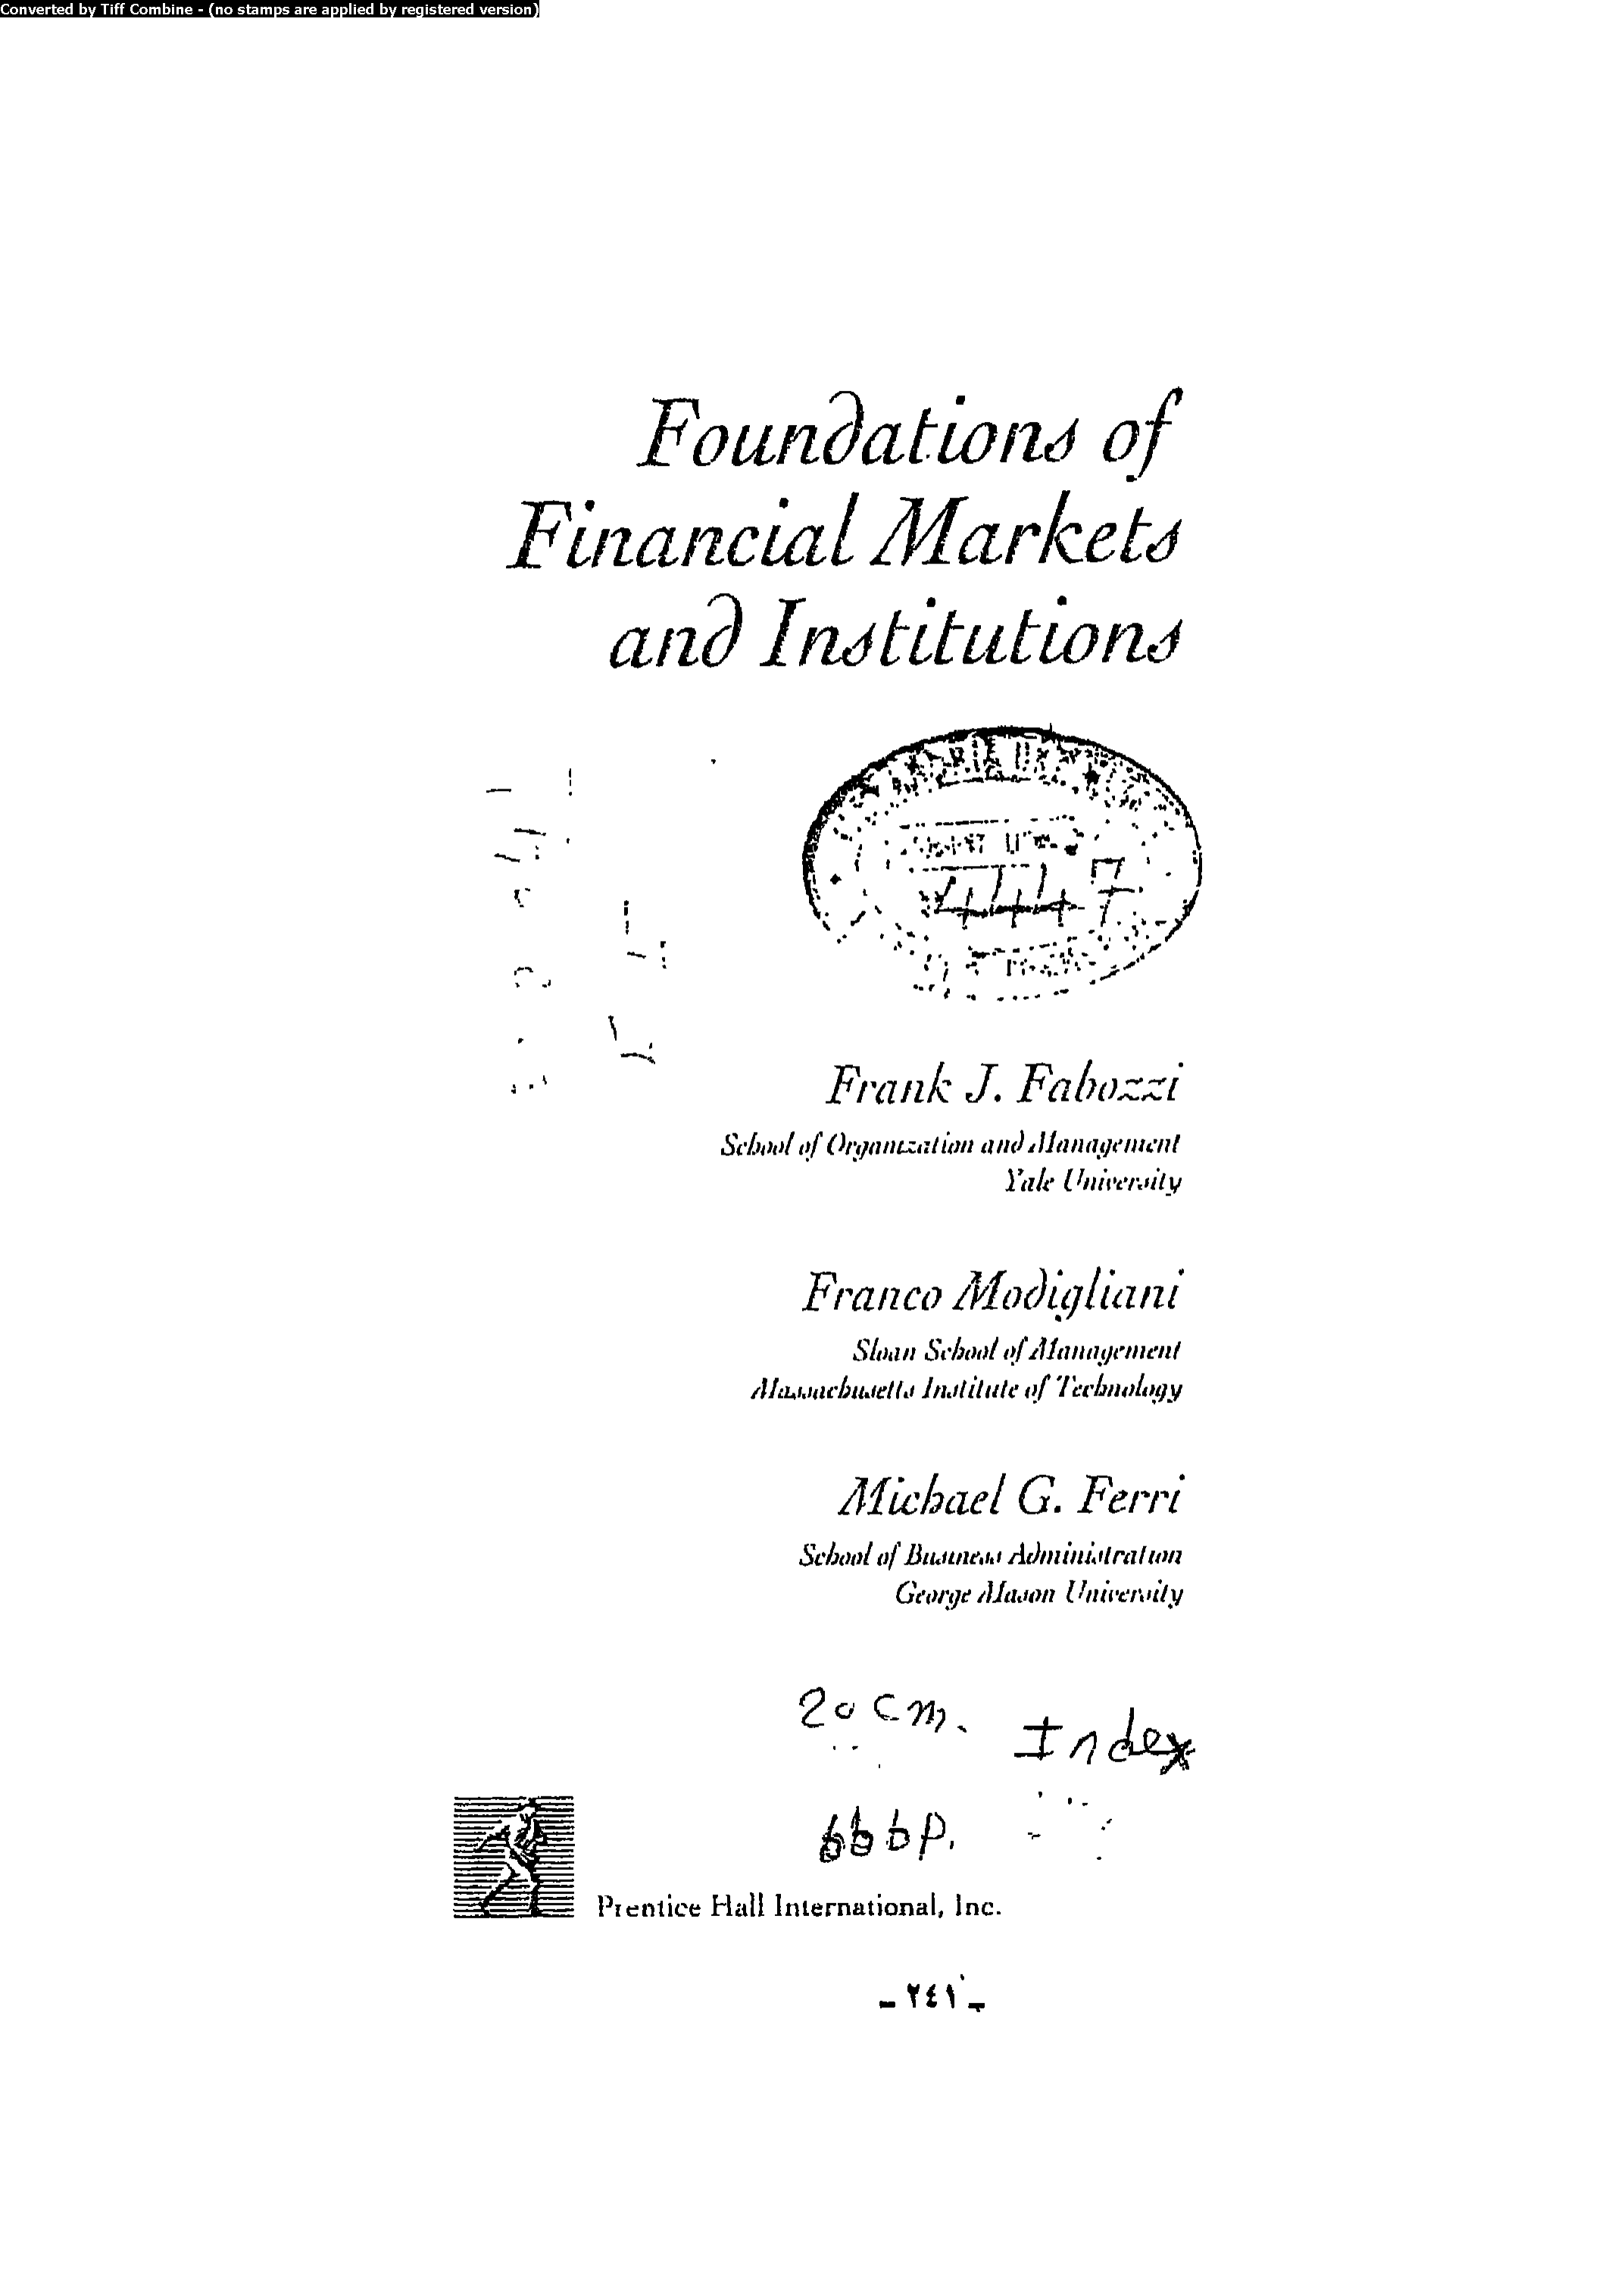 Converted by Tiff Combine - (no stamps are applied by registered version)
Foundations of
Financial Markets
and Institutions
4447
Frank J. Fabozzi
School of Organization and Management
Yale University
Franco Modigliani
Sloan School of Management
Massachusetts Institute of Technology
Michael G. Ferri
School of Business Administration
George Mason University
20 cm.
Index
666p.
Prentice Hall International, Inc.
- ٢٤١ -